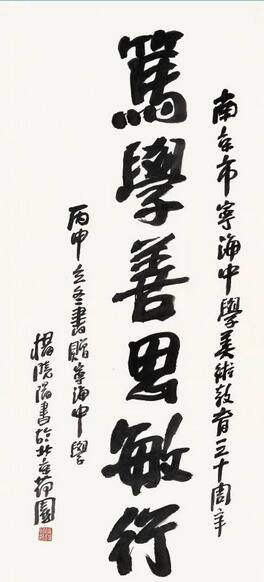 南京市寧海中學美術教育三十周年
篤學善思敏行
丙申立冬書贈寧海中學
楊曉陽書於北京荷園